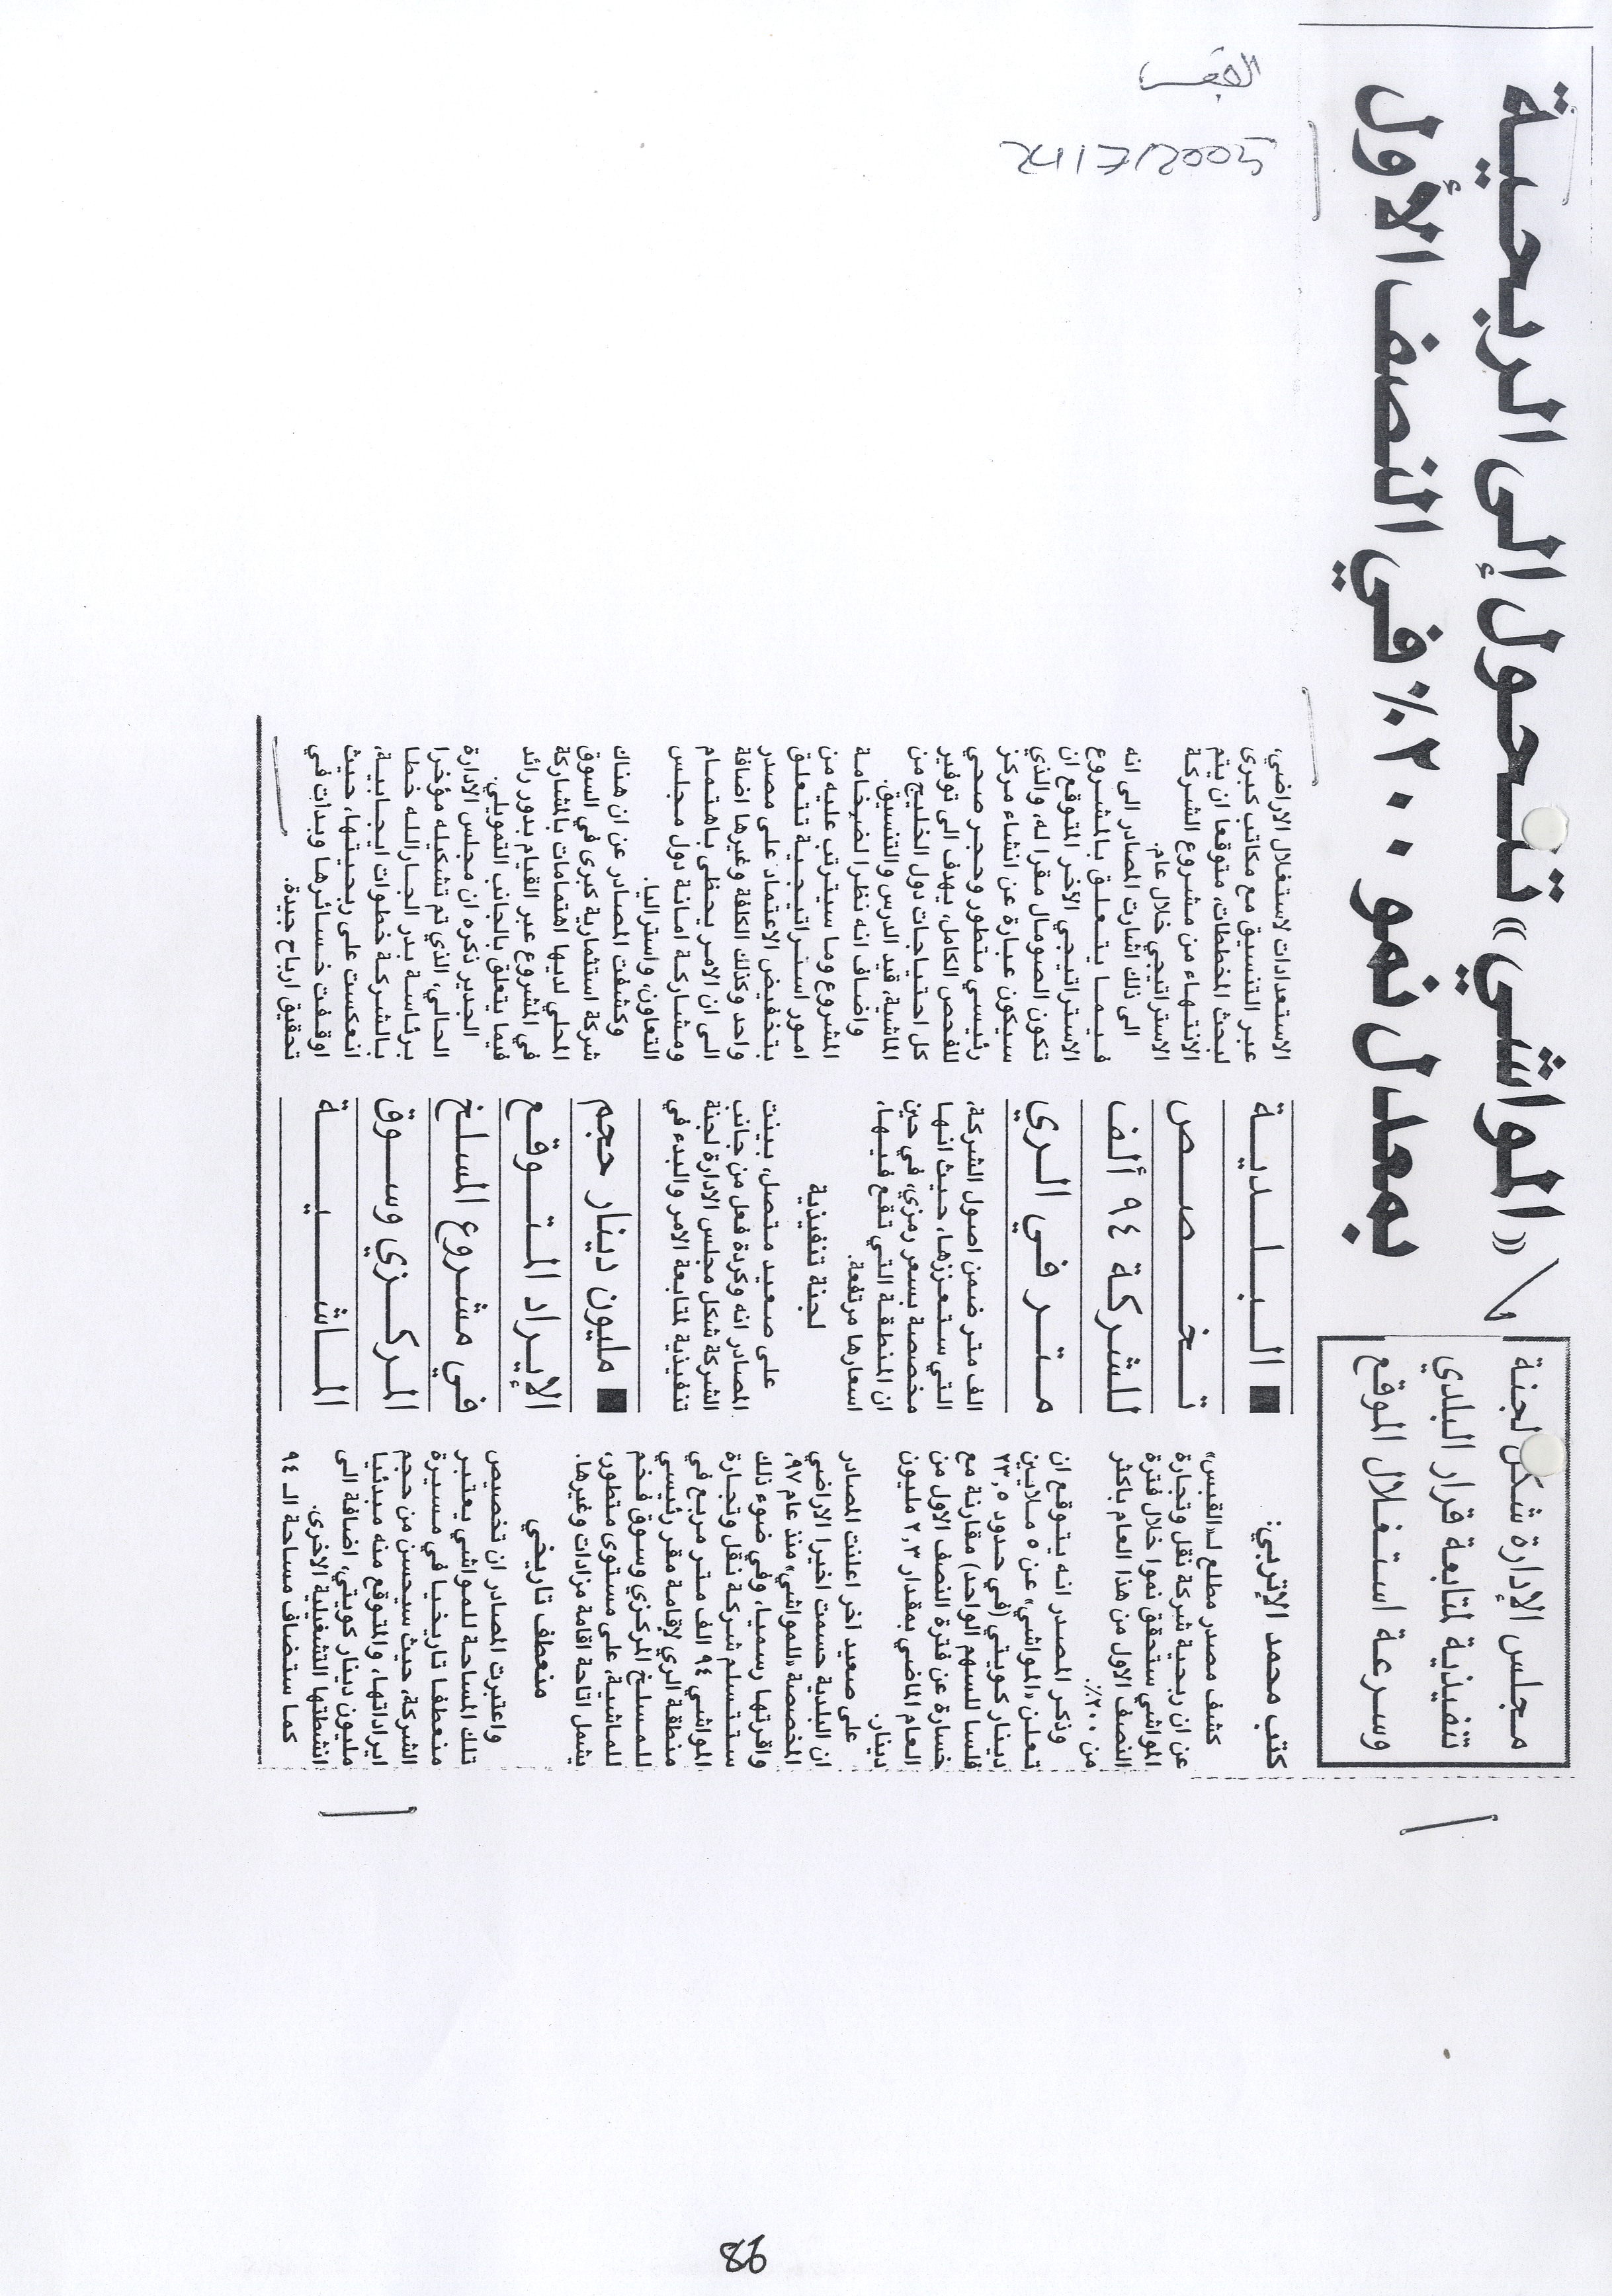 «المواشي» تتحول إلى الربحية
بمعدل نمو ٢٠٠٪ في النصف الأول
القبس
مجلس الإدارة شكل لجنة
تنفيذية لمتابعة قرار البلدي
وسرعة استغلال الموقع
كتب محمد الإتربي:
كشف مصدر مطلع لـ«القبس»
عن ان ربحية شركة نقل وتجارة
المواشي ستحقق نموا خلال فترة
النصف الاول من هذا العام باكثر
من ٢٠٠٪.
وذكر المصدر انه يتوقع ان
تعلن «المواشي» عن ٥ ملايين
دينار كويتي (في حدود ٢٣,٥
فلسا للسهم الواحد) مقارنة مع
خسارة عن فترة النصف الاول من
العام الماضي بمقدار ٢,٣ مليون
دينار.
على صعيد آخر اعلنت المصادر
ان البلدية حسمت اخيرا الاراضي
المخصصة «للمواشي» منذ عام ٩٧،
واقرتها رسميا، وفي ضوء ذلك
ستتسلم شركة نقل وتجارة
المواشي ٩٤ الف متر مربع في
منطقة الري لإقامة مقر رئيسي
للمسلخ المركزي وسوق فخم
للماشية، على مستوى متطور،
يشمل اتاحة اقامة مزادات وغيرها.
منعطف تاريخي
واعتبرت المصادر ان تخصيص
تلك المساحة للمواشي يعتبر
منعطفا تاريخيا في مسيرة
الشركة، حيث سيحسن من حجم
ايراداتها، والمتوقع منه مبدئيا
مليون دينار كويتي، اضافة الى
انشطتها التشغيلية الاخرى.
كما ستضاف مساحة الـ ٩٤
■ البلدية
تخصص
للشركة ٩٤ ألف
متر في الري
الف متر ضمن اصول الشركة،
التي ستعززها، حيث انها
مخصصة بسعر رمزي، في حين
ان المنطقة التي تقع فيها،
اسعارها مرتفعة.
لجنة تنفيذية
على صعيد متصل، بينت
المصادر انه وكردة فعل من جانب
الشركة شكل مجلس الادارة لجنة
تنفيذية لمتابعة الامر والبدء في
■ مليون دينار حجم
الإيراد المتوقع
في مشروع المسلخ
المركزي وسوق
الماشية
الاستعدادات لاستغلال الاراضي،
عبر التنسيق مع مكاتب كبرى
لبحث المخططات، متوقعا ان يتم
الانتهاء من مشروع الشركة
الاستراتيجي خلال عام.
الى ذلك اشارت المصادر الى انه
فيما يتعلق بالمشروع
الاستراتيجي الآخر المتوقع ان
تكون الصومال مقرا له، والذي
سيكون عبارة عن انشاء مركز
رئيسي متطور وحجر صحي
للفحص الكامل، يهدف الى توفير
كل احتياجات دول الخليج من
الماشية، قيد الدرس والتنسيق.
واضاف انه نظرا لضخامة
المشروع وما سيترتب عليه من
امور استراتيجية تتعلق
بتخفيض الاعتماد على مصدر
واحد وكذلك الكلفة وغيرها اضافة
الى ان الامر يحظى باهتمام
ومشاركة امانة دول مجلس
التعاون، واستراليا.
وكشفت المصادر عن ان هناك
شركة استثمارية كبرى في السوق
المحلي لديها اهتمامات بالمشاركة
في المشروع عبر القيام بدور رائد
فيما يتعلق بالجانب التمويلي.
الجدير ذكره ان مجلس الادارة
الحالي، الذي تم تشكيله مؤخرا
برئاسة بدر الجارالله خطا
بالشركة خطوات ايجابية،
انعكست على ربحيتها، حيث
اوقفت خسائرها وبدأت في
تحقيق ارباح جيدة.